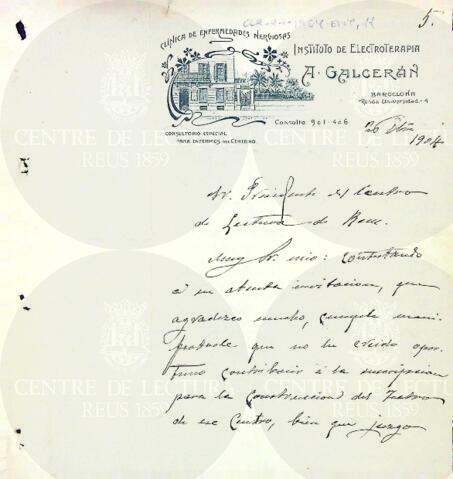 5.
CLINICA DE ENFERMEDADES NERVIOSAS
INSTITUTO DE ELECTROTERAPIA
A. GALCERÁN
BARCELONA
RONDA UNIVERSIDAD, 4
CONSULTORIO ESPECIAL
PARA ENFERMOS DEL CEREBRO
Consulta
26
1904
Sr. Presidente del Centro
de Lectura de Reus.
Muy Sr. mio: Contestando
á su atenta invitacion, que
agradezco mucho, cumple mani-
festarle que no he creido opor-
tuno contribuir á la suscripcion
para la construccion del Teatro
de ese Centro, bien que juzgo
CENTRE DE LECTURA
REUS 1859
CENTRE DE LECTURA
REUS 1859
CENTRE DE LECTURA
REUS 1859
CENTRE DE LECT
REUS 1859